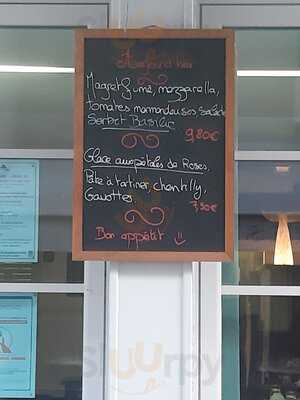 Aujourd'hui
Magret fumé, mozzarella,
tomates marmandaises, Salade
Sorbet Basilic
9,80€
Glace aux pétales de Roses,
Pâte à tartiner, chantilly,
Gavottes.
7,50€
Bon appétit
sluurpy